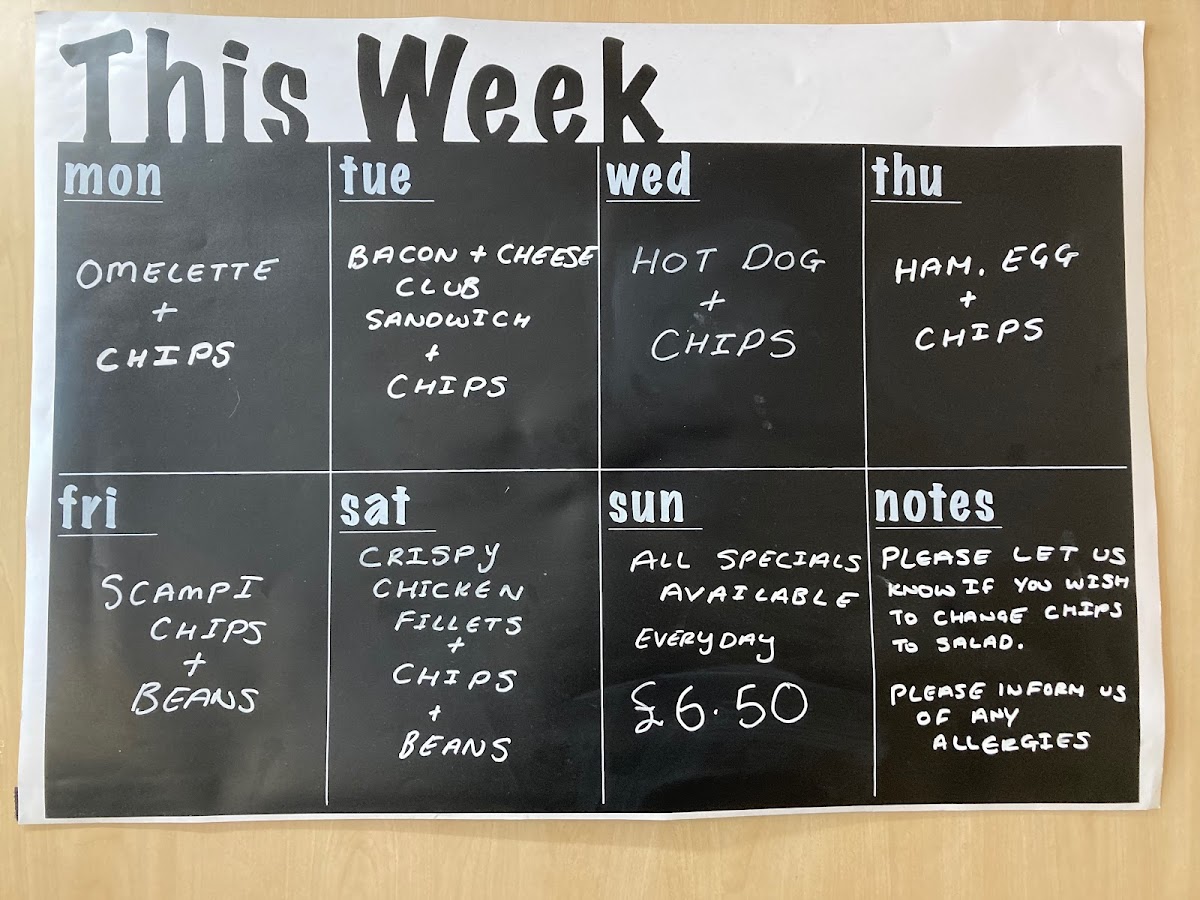 This Week
mon
OMELETTE
+
CHIPS
tue
BACON + CHEESE
CLUB
SANDWICH
+
CHIPS
wed
HOT DOG
+
CHIPS
thu
HAM. EGG
+
CHIPS
fri
SCAMPI
CHIPS
+
BEANS
sat
CRISPY
CHICKEN
FILLETS
+
CHIPS
+
BEANS
sun
ALL SPECIALS
AVAILABLE
EVERYDAY
£6.50
notes
PLEASE LET US
KNOW IF YOU WISH
TO CHANGE CHIPS
TO SALAD.
PLEASE INFORM US
OF ANY
ALLERGIES